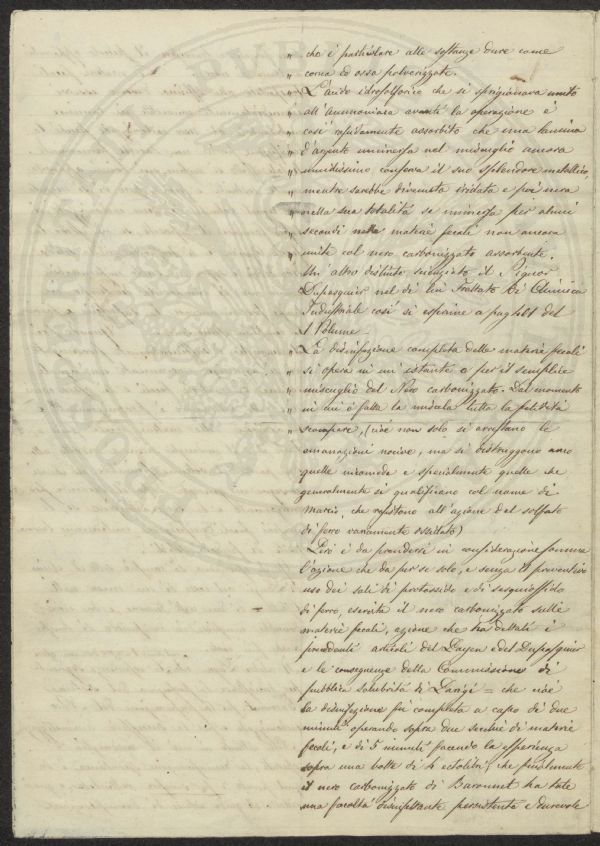 " che è particolare alle sostanze dure come
" corna ed ossa polverizzate.
" L'acido idrosolforico che si sprigionava unito
" all'Ammoniaca avanti la operazione è
" così rapidamente assorbito che una lamina
" d'argento immersa nel miscuglio ancora
" umidissimo conserva il suo splendore metallico,
" mentre sarebbe divenuta iridata e poi nera
" nella sua totalità se immersa per alcuni
" secondi nelle materie fecali non ancora
" unite col nero carbonizzato assorbente.
Un altro distinto scienziato il Signor
Dupasquier nel di lui Trattato di Chimica
Industriale così si esprime a pag. del
I Volume
" La disinfezione completa delle materie fecali
" si opera in un istante e per il semplice
" miscuglio del Nero carbonizzato. Dal momento
" in cui è fatta la miscela tutta la fetidità
" scompare, (cioè non solo si arrestano le
emanazioni nocive, ma si distruggono anco
quelle incomode e specialmente quelle che
generalmente si qualificano col nome di
marcio, che resistono all'azione del solfato
di ferro variamente ossidato)
Però è da prendersi in considerazione somma
l'azione che da per se solo, e senza il preventivo
uso dei sali di protossido e di sesquiossido
di ferro, esercita il nero carbonizzato sulle
materie fecali, azione che ha dettati i
precedenti articoli del Payen e del Dupasquier
e le conseguenze della Commissione di
pubblica salubrità di Parigi = che cioè
la disinfezione fu completa a capo di due
minuti operando sopra due secchie di materie
fecali, e di 5 minuti facendo la esperienza
sopra una botte di 4 ectolitri, che finalmente
il nero carbonizzato di Baronnet ha tale
una facoltà disinfettante persistente e durevole